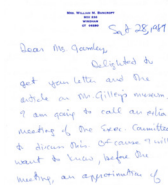 MRS. WILLIAM M. BURCROFT
BOX 222
WINDHAM
CT 06280
Sept 28, 1989
Dear Mr. Gormley
Delighted to
get your letter and the
article on Mr. Gilley's museum
I am going to call an extra
meeting of the Exec. Committee
to discuss this. Of course I will
want to know, before the
meeting, an approximation of